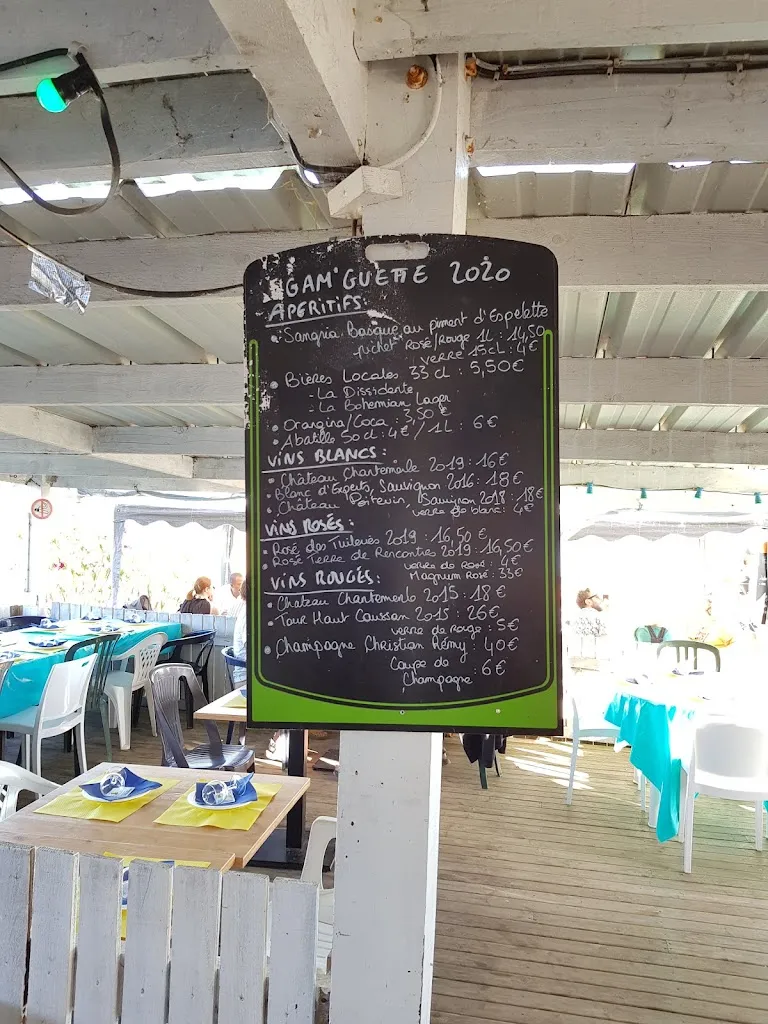 GAM'GUETTE 2020
APERITIFS:
• Sangria Basque au piment d'Espelette
Pichet Rosé/Rouge 1L: 14,50
verre 15cl: 4€
• Bières Locales 33 cl : 5,50€
- La Dissidente
- La Bohemian Lager
• Orangina/Coca 3,50€
• Abatille 50cl: 4€ / 1L : 6€
VINS BLANCS:
• Château Chantemerle 2019: 16€
• Blanc d'Experts, Sauvignon 2016: 18€
• Château Poitevin Sauvignon 2018: 18€
verre de blanc: 4€
VINS ROSÉS:
• Rosé des Tuileries 2019: 16,50€
• Rosé Terre de Rencontres 2019: 16,50€
verre de rosé: 4€
Magnum Rosé: 33€
VINS ROUGES:
• Château Chantemerle 2015: 18€
• Tour Haut Caussan 2015: 26€
verre de rouge: 5€
• Champagne Christian Rémy: 40€
Coupe de
Champagne: 6€